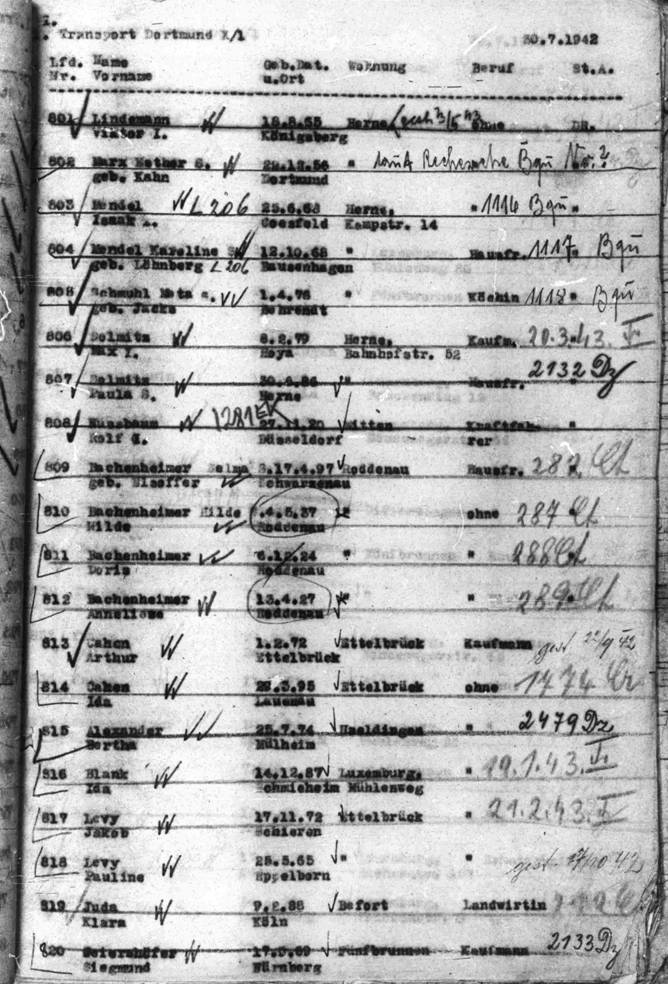 Transport Dortmund X/1 30.7.1942
Lfd. Name Geb.Dat. Wohnung Beruf St.A.
Nr. Vorname u.Ort
801 Lindemann W 18.8.55 Herne ohne DR.
Viktor I. Königsberg
802 Marx S. W "
geb. Kahn Dortmund
803 Mendel W L 206 25.6.63 Herne, " 1116 Bqu "
Isaak I. Coesfeld Kampstr. 14
804 Mendel Karoline S. 12.10.68 " Hausfr. 1117 Bqu
geb. Löhnberg L 206 Bausenhagen
805 Schmuhl Meta s. W 1.4.76 " Köchin 1118 " Bqu
geb. Jacks Behrendt
806 Dolmitz W 8.2.79 Herne, Kaufm. 20.3.43.
Max I. Hoya Bahnhofstr. 52
2132 Dz
807 Dolmitz W " Hausfr. "
Paula S. Herne
808 Nussbaum W 1281 EK 27.11.20 Witten "
Rolf Düsseldorf rer
809 Bachenheimer Selma 17.4.97 Roddenau Hausfr. 282 Ct
geb. Schwarzenau
810 Bachenheimer Hilde ohne 287 Ct
Hilde Roddenau
811 Bachenheimer W 6.12.24 " " 288 Ct
Doris Roddenau
812 Bachenheimer W 13.4.27 " " 289 Ct
Anneliese Roddenau
813 Cahen W 1.2.72 Ettelbrück Kaufmann gest 22/9 42
Arthur Ettelbrück
814 Cahen W 29.3.95 Ettelbrück ohne 1774
Ida Lauenau
815 Alexander W 25.7.74 Useldingen " 2479 Dz
Bertha Mülheim
816 Blank W 14.12.87 Luxemburg, " 19.1.43.
Ida Schmieheim Mühlenweg
817 Levy W 17.11.72 Ettelbrück " 21.2.43
Jakob Schieren
818 Levy W 25.5.65 " " gest 17/10 42
Pauline Eppelborn
819 Juda W 9.2.88 Befort Landwirtin
Klara Köln
820 Geiershöfer W 17.5.69 Fünfbrunnen Kaufmann 2133 Dz
Siegmund Nürnberg